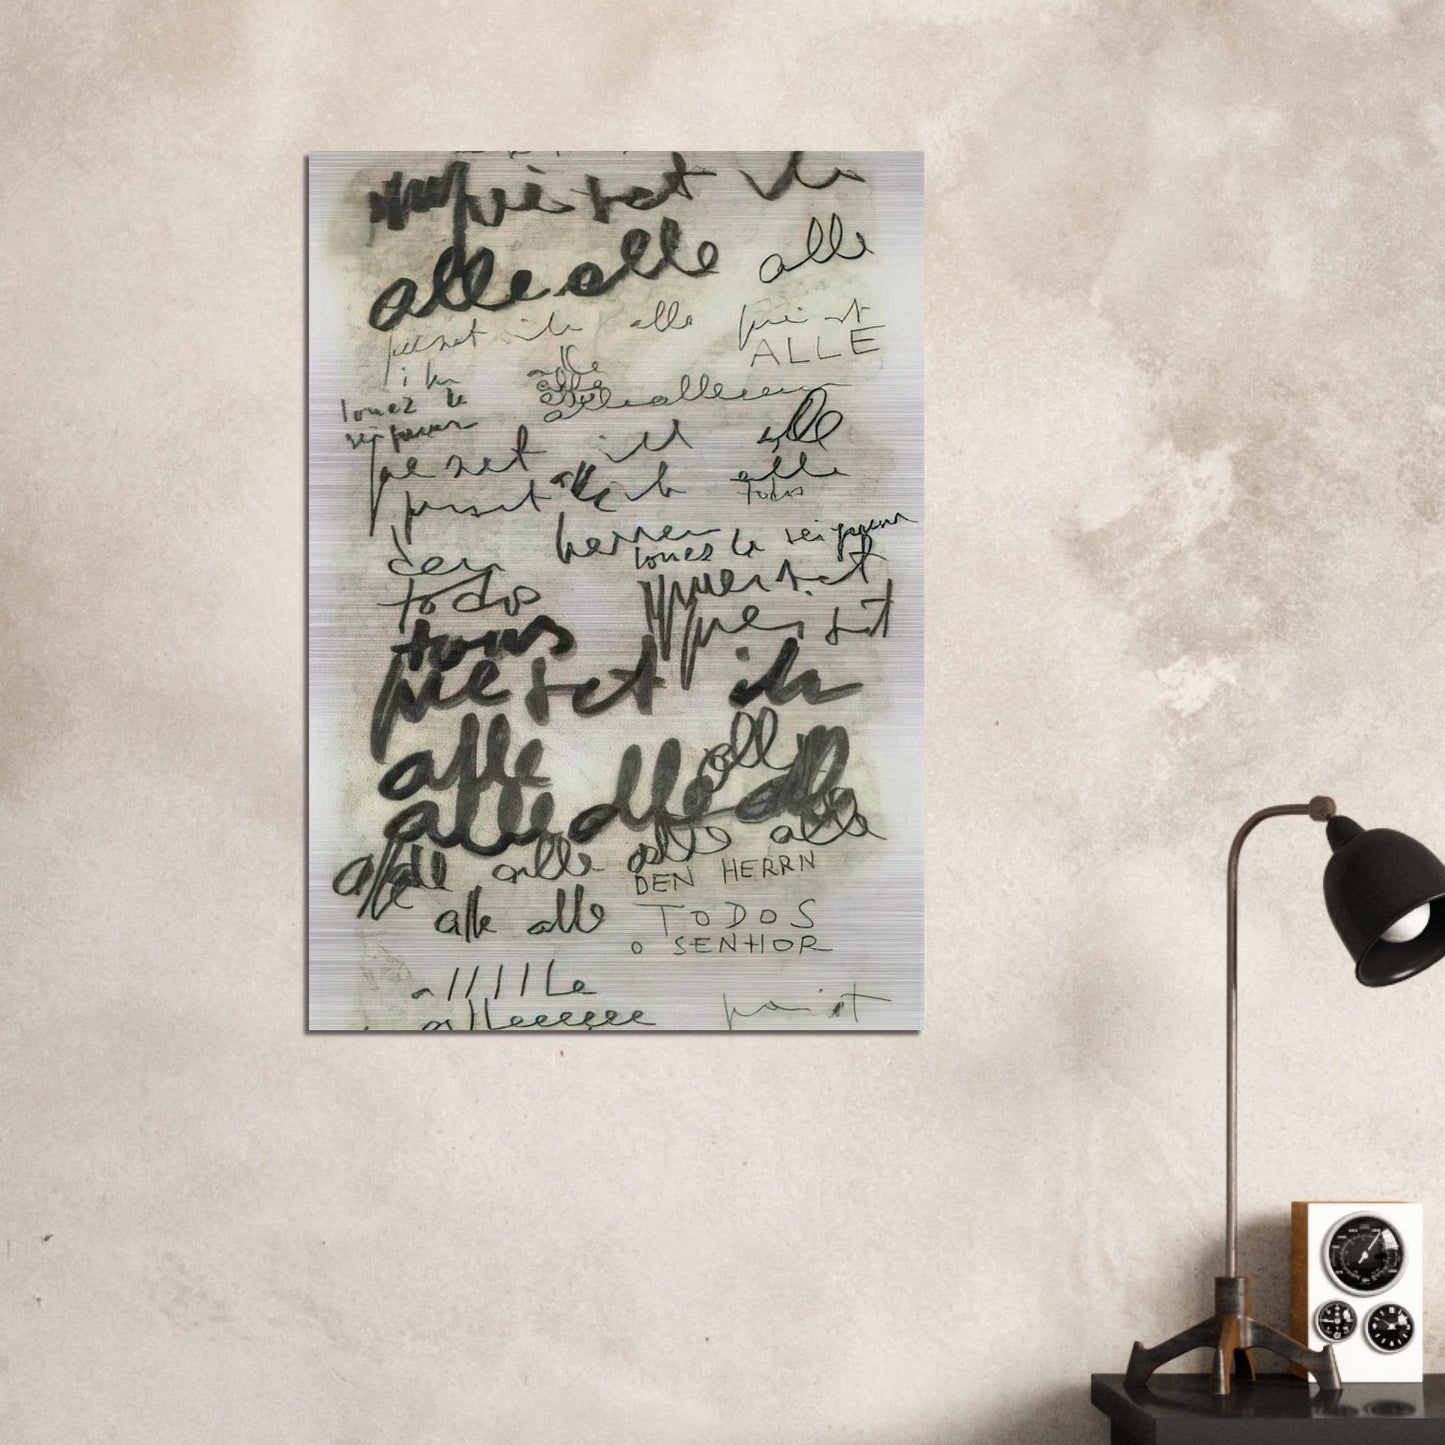 preiset ihn
alle alle alle
preiset ihn alle preiset
ALLE
ihn alle
louez le alle
seigneur alle alleeeee
preiset ihn alle
preiset alle ihn alle
todos
den herren louez le seigneur
todos preiset
tous preiset
preiset ihn
alle alle
alle alle alle
alle alle alle alle
DEN HERRN
alle alle TODOS
O SENHOR
allllle
alleeeeeee preist